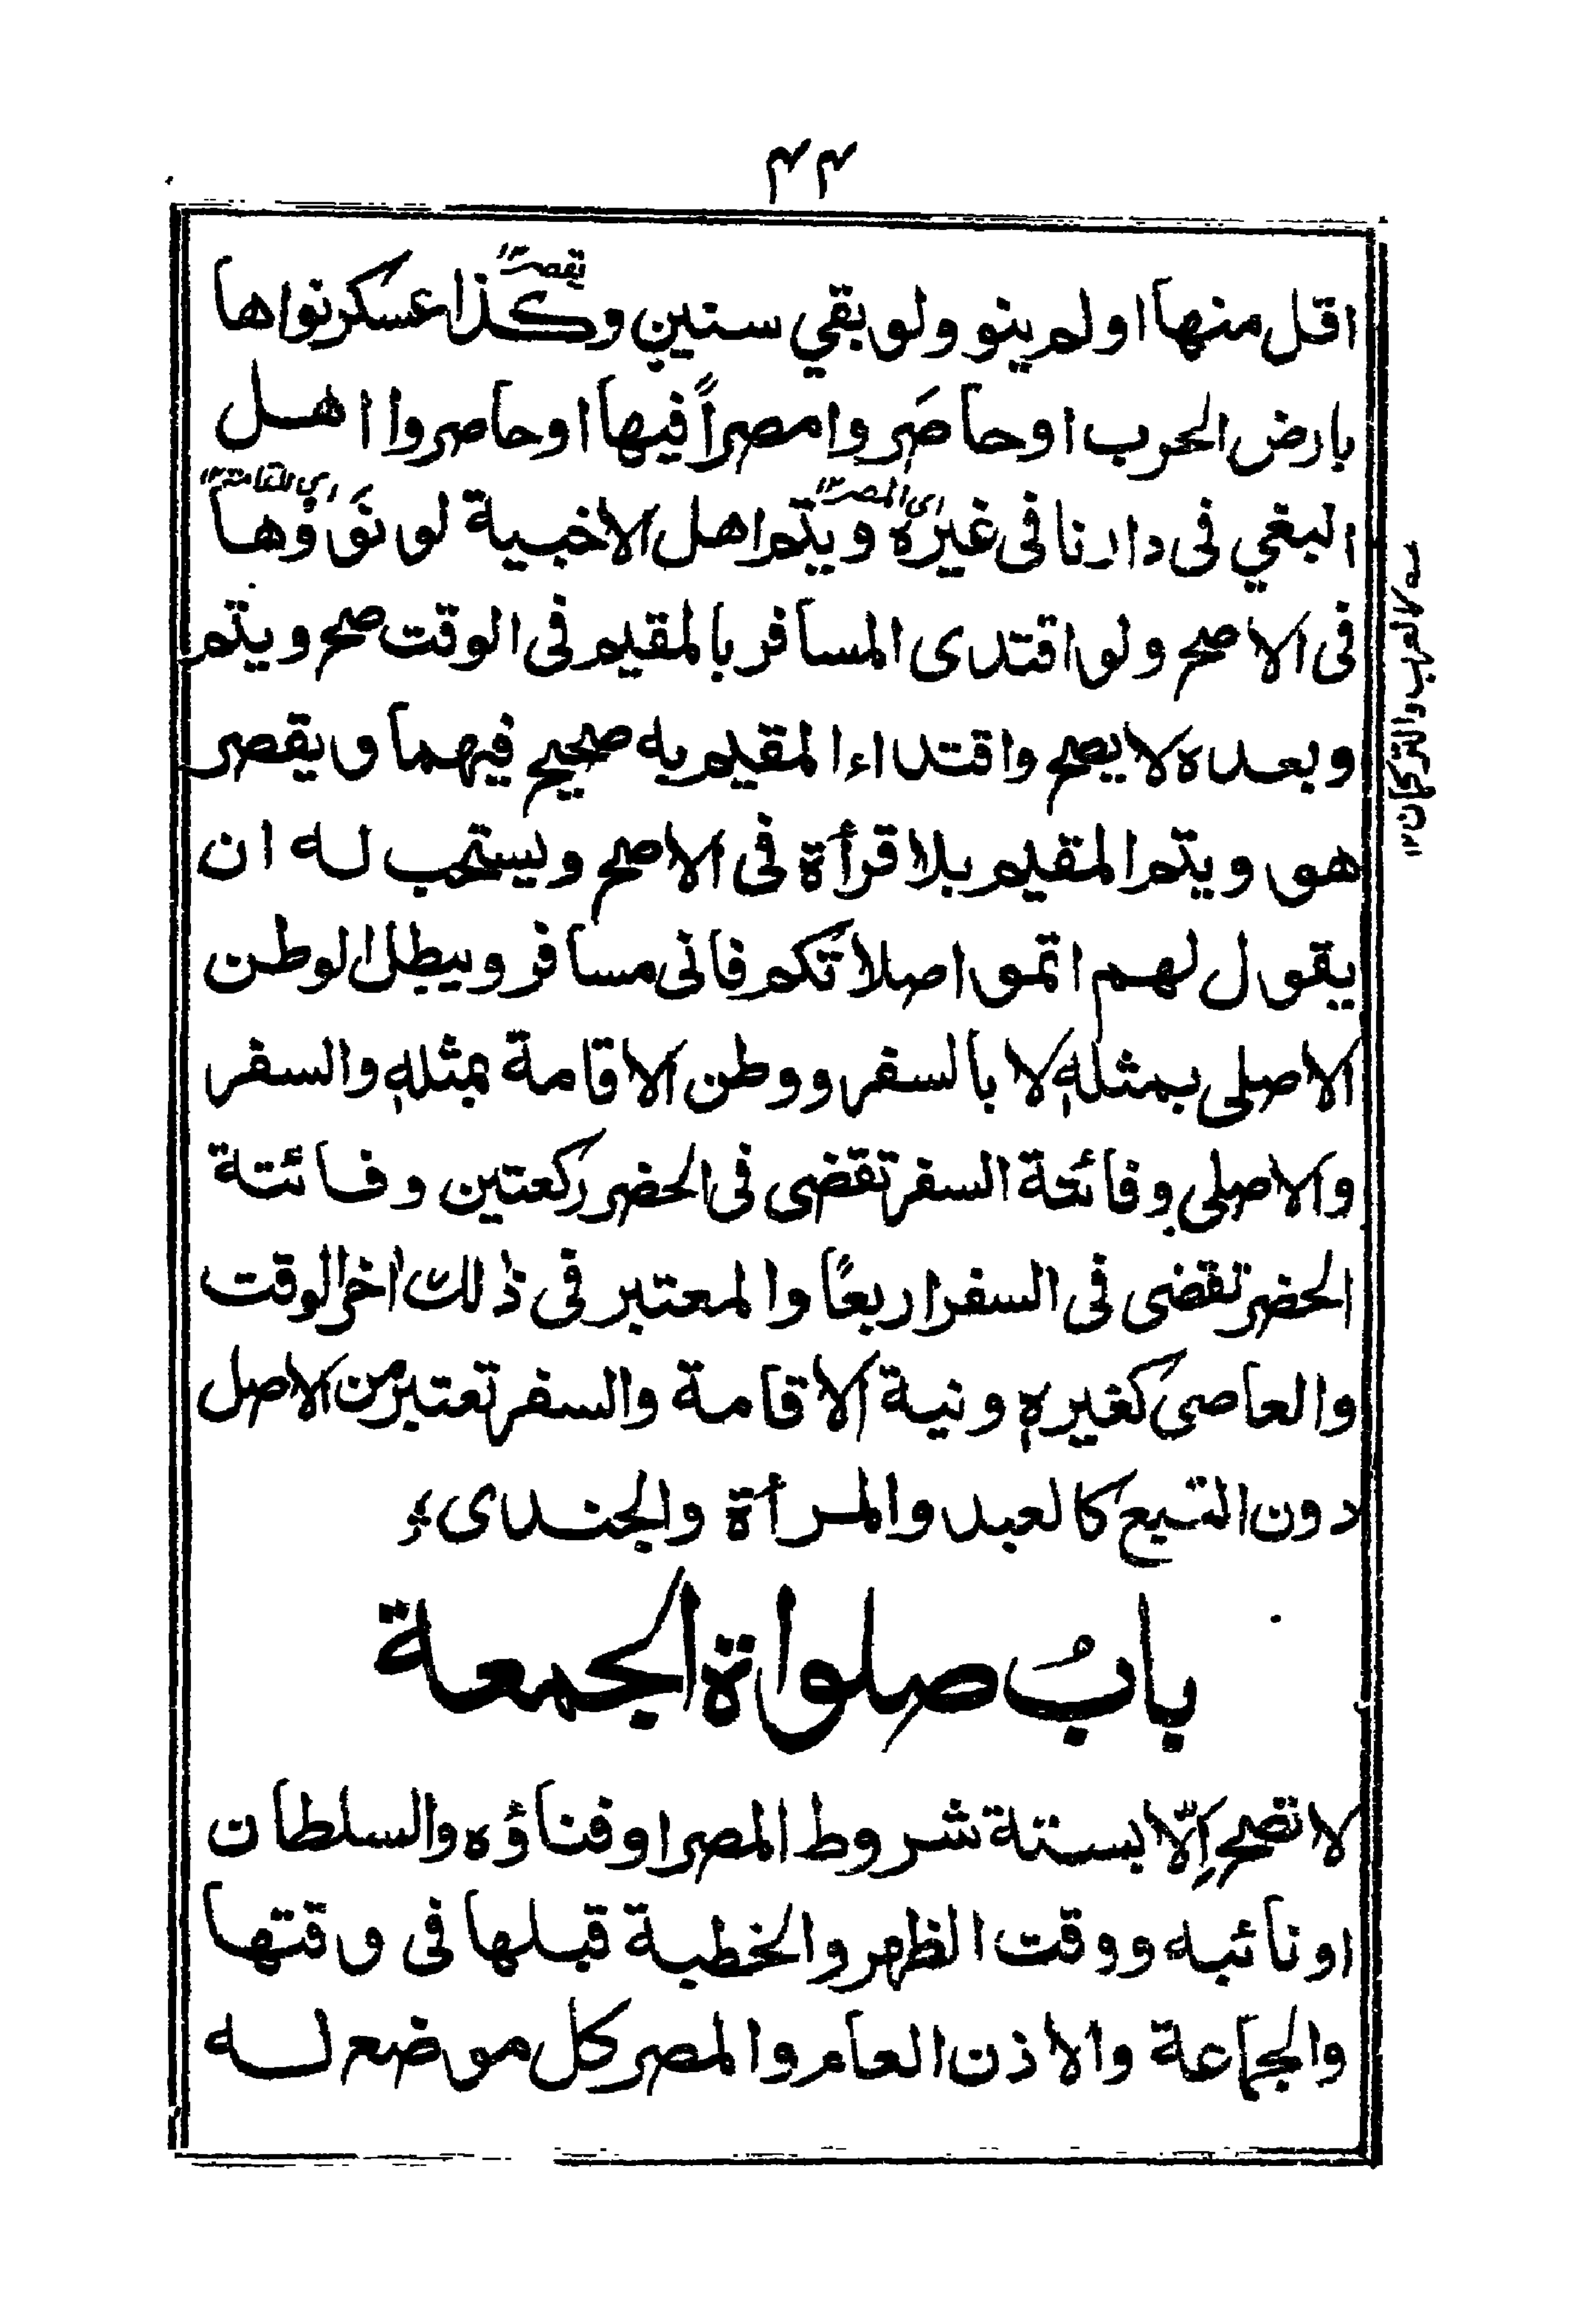 ۴۴
يقصر ۱۲
اقل منها او لم ينو ولو بقي سنين وكذا عسكر نواها
بارض الحرب او حاصَروا مصراً فيها او حاصروا اهل
اى المصر ۱۲ اى الاقامة ۱۲
البغي فى دارنا فى غيره ويتم اهل الاخبية لو نَوَوْها
فى الاصح ولو اقتدى المسافر بالمقيم فى الوقت صح ويتم
وبعده لا يصح واقتداء المقيم به صحيح فيهما ويقصر
هو ويتم المقيم بلا قرأة فى الاصح ويستحب له ان
يقول لهم اتموا صلاتكم فانى مسافر ويبطل الوطن
الاصلى بمثله لا بالسفر ووطن الاقامة بمثله والسفر
والاصلى وفائحة السفر تقضى فى الحضر ركعتين وفائتة
الحضر تقضى فى السفر اربعًا والمعتبر فى ذلك اخر الوقت
والعاصى كغيره ونية الاقامة والسفر تعتبر من الاصل
دون التبع كالعبد والمرأة والجندى
بابُ صلواة الجمعة
لا تصح اِلّا بستة شروط المصر او فناؤه والسلطان
او نائبه ووقت الظهر والخطبة قبلها فى وقتها
والجماعة والاذن العام والمصر كل موضع له
كالعرب والتركمان ۱۲